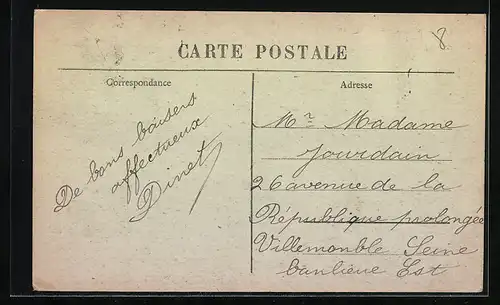 8
CARTE POSTALE
Correspondance
Adresse
De bons baisers
affectueux
Dinet
Mr Madame
Jourdain
26 avenue de la
République prolongée
Villemonble Seine
banlieue Est